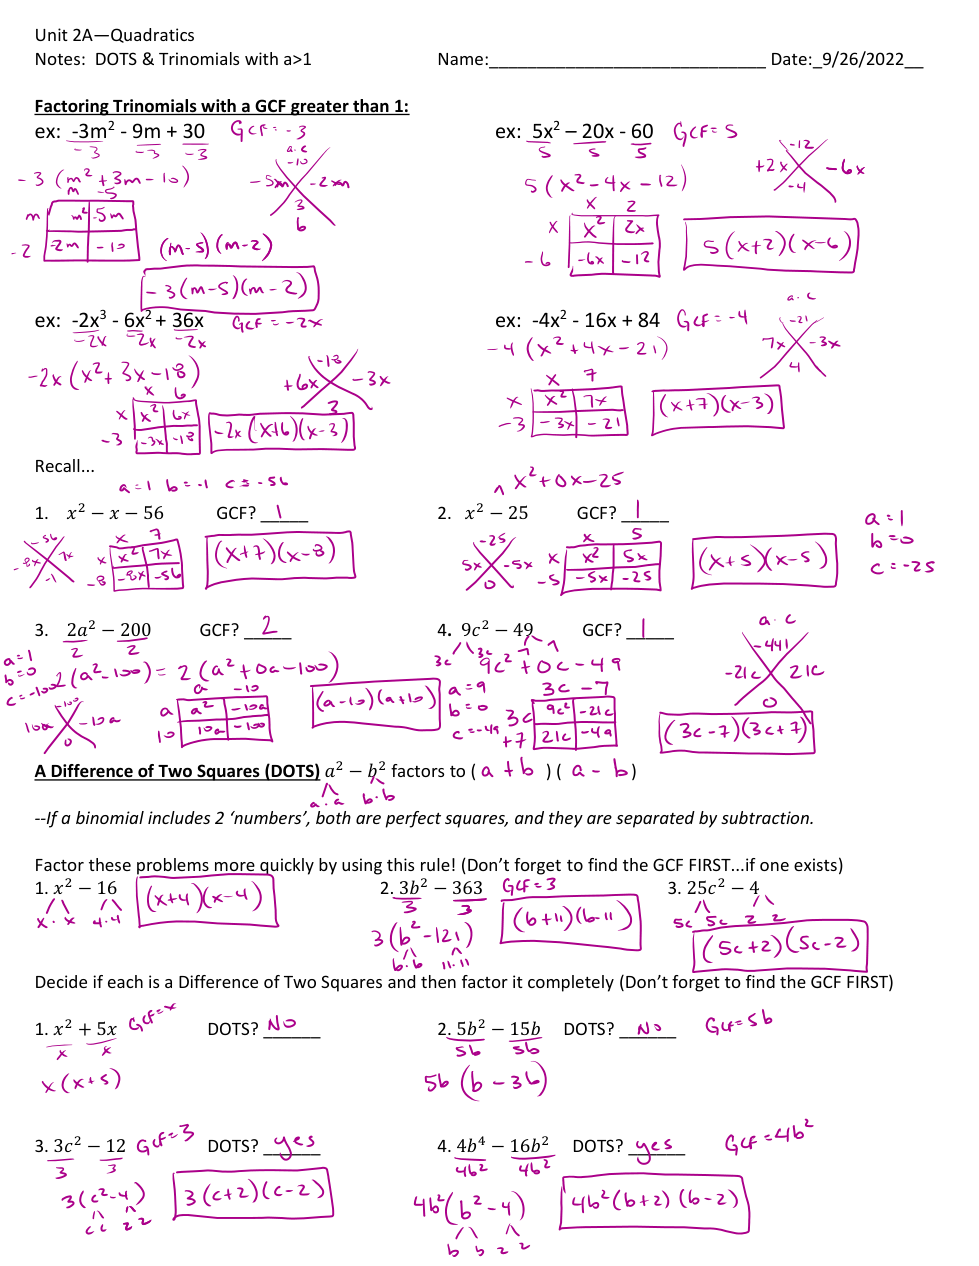 Unit 2A—Quadratics
Notes: DOTS & Trinomials with a>1 Name:____________________________ Date:_9/26/2022__
Factoring Trinomials with a GCF greater than 1:
ex: -3m² - 9m + 30 GCF = -3
-3 -3 -3
a.c
-10
-5m -2m
3
6
-3 (m² + 3m - 10)
m -5
m m² -5m
-2 -2m -10
(m-5)(m-2)
-3(m-5)(m-2)
ex: 5x² – 20x - 60 GCF = 5
5 5 5
-12
+2x -6x
-4
5(x² - 4x - 12)
x 2
x x² 2x
-6 -6x -12
5(x+2)(x-6)
ex: -2x³ - 6x² + 36x GCF = -2x
-2x -2x -2x
-2x(x² + 3x - 18)
-18
+6x -3x
3
x 6
x x² 6x
-3 -3x -18
-2x(x+6)(x-3)
ex: -4x² - 16x + 84 GCF = -4
a.c
-21
7x -3x
4
-4(x² + 4x - 21)
x 7
x x² 7x
-3 -3x -21
(x+7)(x-3)
Recall...
a=1 b=-1 c=-56
1. x² − x − 56 GCF? __1__
-56
-8x 7x
-1
x 7
x x² 7x
-8 -8x -56
(x+7)(x-8)
x² + 0x - 25
2. x² − 25 GCF? __1__
-25
5x -5x
0
x 5
x x² 5x
-5 -5x -25
(x+5)(x-5)
a=1
b=0
c=-25
3. 2a² − 200 GCF? __2__
2 2
a=1
b=0
c=-100
2(a²-100) = 2(a²+0a-100)
-100
10a -10a
0
a -10
a a² -10a
10 10a -100
(a-10)(a+10)
4. 9c² − 49 GCF? __1__
3c 3c -7 7
9c² + 0c - 49
a=9
b=0
c=-49
3c -7
3c 9c² -21c
+7 21c -49
a.c
-441
-21c 21c
0
(3c-7)(3c+7)
A Difference of Two Squares (DOTS) a² − b² factors to ( a + b )( a - b )
a.a b.b
--If a binomial includes 2 ‘numbers’, both are perfect squares, and they are separated by subtraction.
Factor these problems more quickly by using this rule! (Don’t forget to find the GCF FIRST...if one exists)
1. x² − 16
x.x 4.4
(x+4)(x-4)
2. 3b² − 363 GCF=3
3 3
3(b²-121)
b.b 11.11
(b+11)(b-11)
3. 25c² − 4
5c 5c 2 2
(5c+2)(5c-2)
Decide if each is a Difference of Two Squares and then factor it completely (Don’t forget to find the GCF FIRST)
1. x² + 5x GCF=x DOTS? No
x x
x(x+5)
2. 5b² − 15b DOTS? No GCF=5b
5b 5b
5b(b-36)
3. 3c² − 12 GCF=3 DOTS? yes
3 3
3(c²-4)
c c 2 2
3(c+2)(c-2)
4. 4b⁴ − 16b² DOTS? yes GCF=4b²
4b² 4b²
4b²(b²-4)
b b 2 2
4b²(b+2)(b-2)